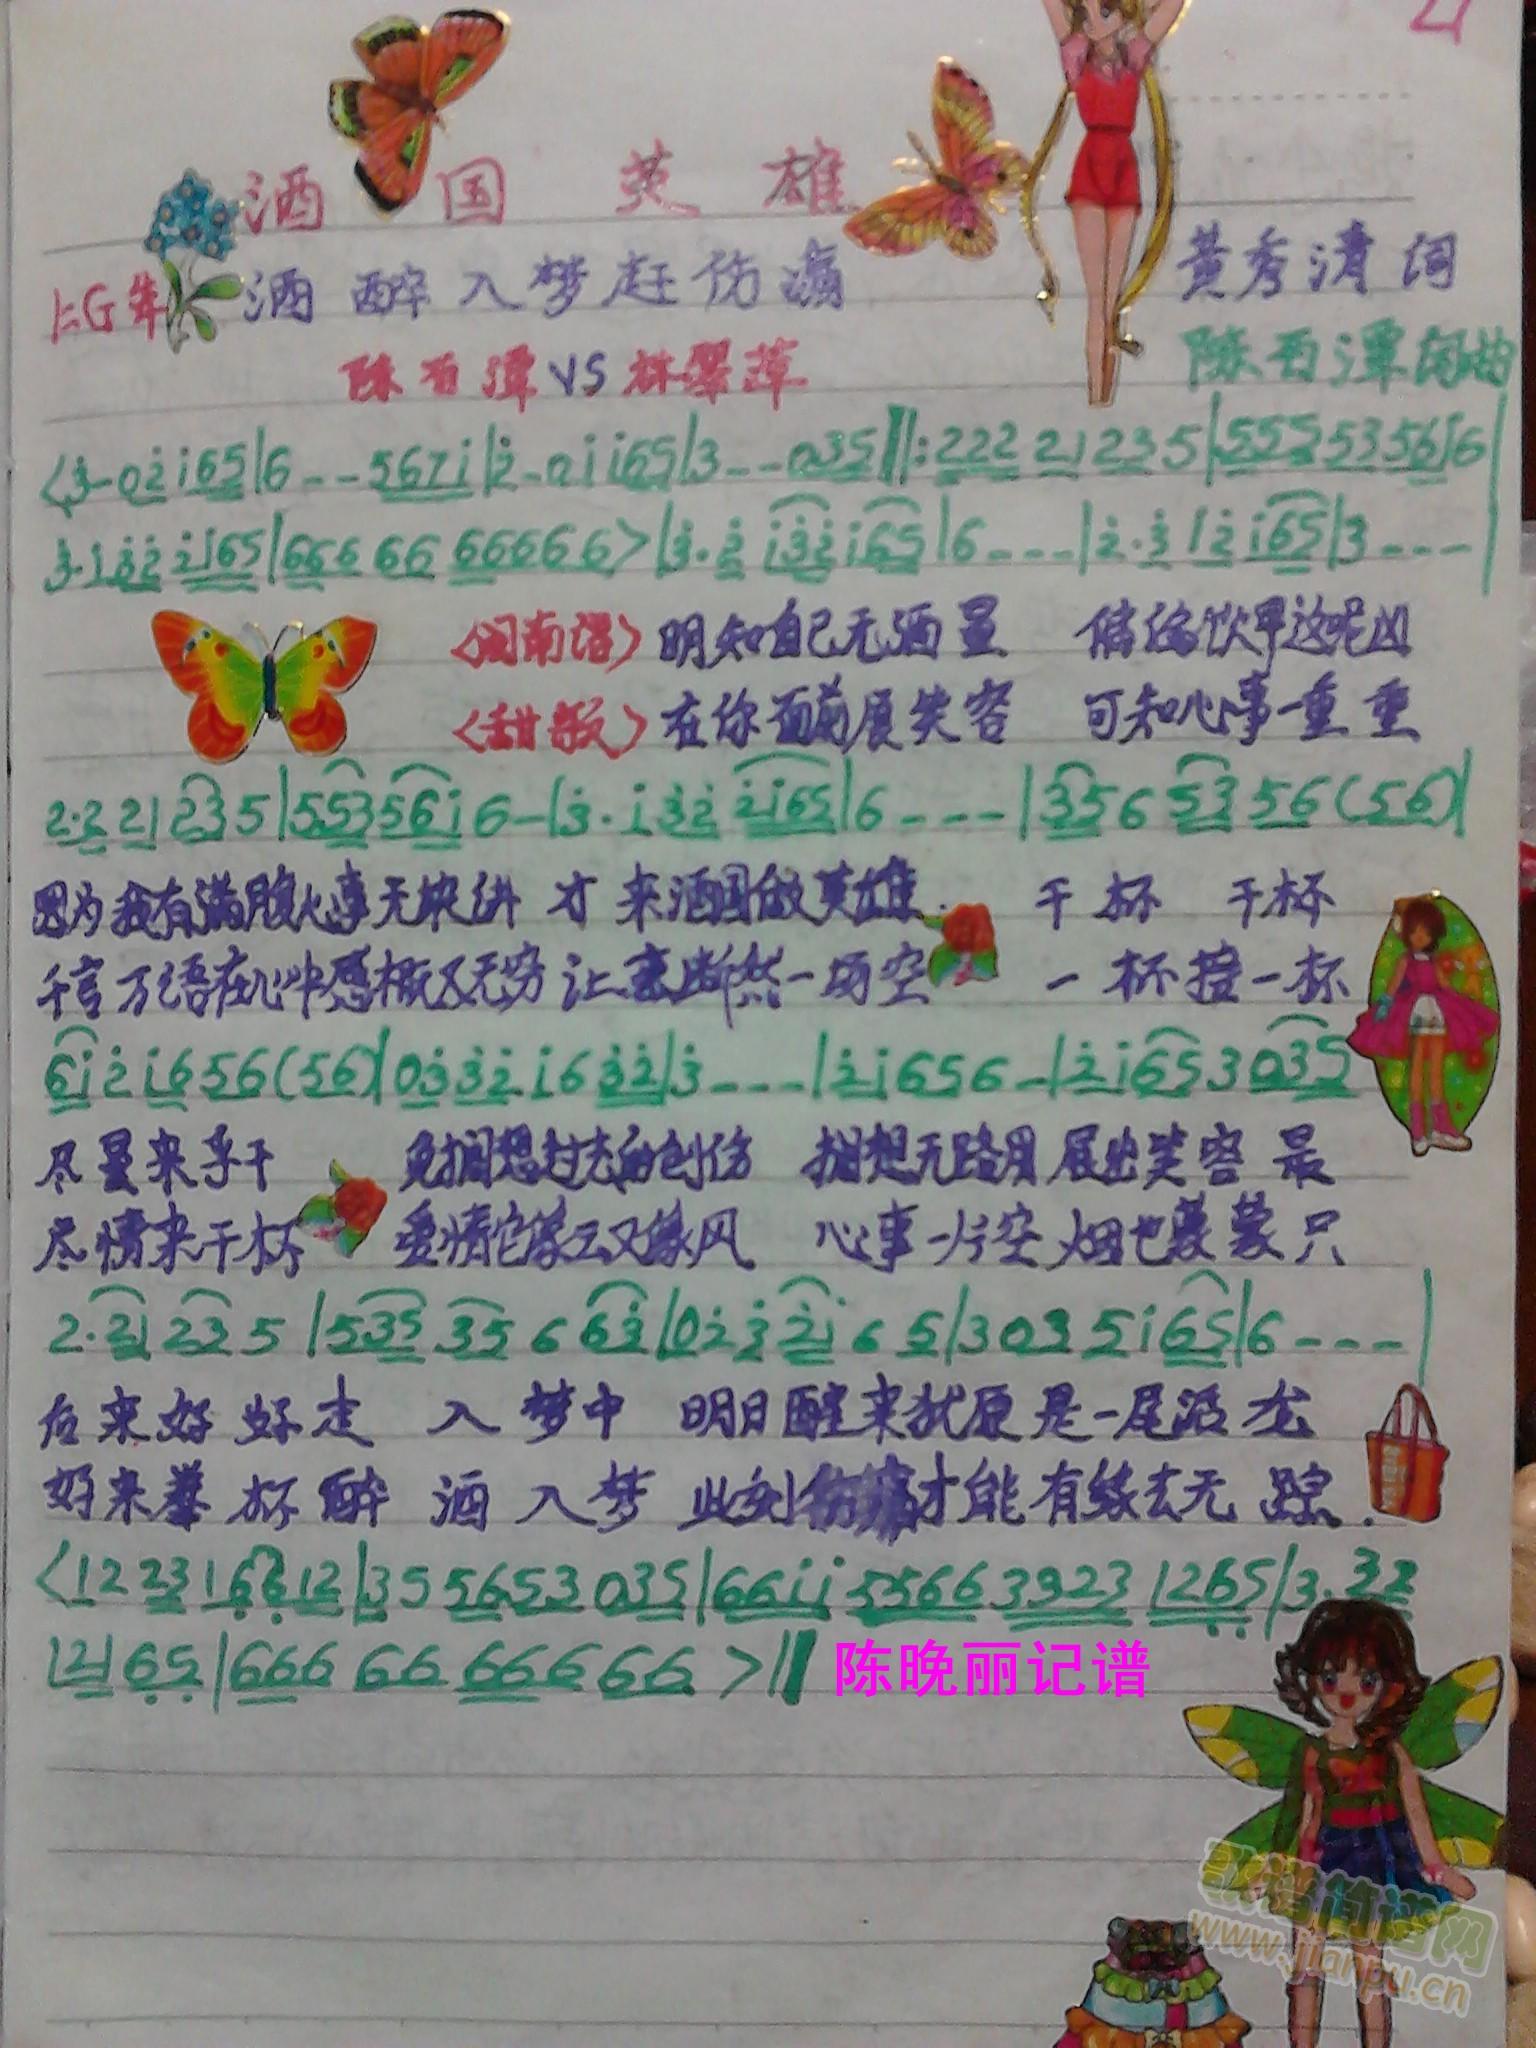 21
酒国英雄
酒醉入梦赶伤痛
黄秀清词
1=G 4/4
陈百潭VS林翠萍
陈百潭闽曲
<3-02i65|6--567i|2-0ii65|3--035‖:222 21 235|555 5356i6
3·i32 2i65|666 66 66666>|3·2 i32i65|6---|2·3 12 i65|3---
<闽南语> 明知自己无酒量 偏偏饮甲这呢凶
<甜歌> 在你面前展笑容 可知心事一重重
2·2 21 235|55356i6-|3·i32 2i65|6---|356 53 56(56)|
因为我有满腹心事无块讲 才来酒国做英雄. 干杯 干杯
千言万语在心中感概又无穷 让来断然一场空 一杯接一杯
6i2i656(56)|0332i632|3---|2i656-|2i653035
尽量来乎干 免搁想过去的创伤 搁想无路用展出笑容最
尽情来干杯 爱情它象云又象风 心事一片空烟也蒙蒙只
2·21 235|535 35 6 63|0232i6 5|3035i65|6---|
后来好好走 入梦中 明日醒来犹原是一尾活龙
好来举杯醉 酒入梦 此刻伤痛才能有缘去无踪.
<12 23 166 12|35 5653 035|66ii 5566 3323 1265|3·32
121 65|666 66 666 66>‖ 陈晚丽记谱
歌谱简谱网
www.jianpu.cn